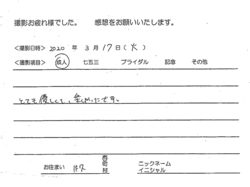 撮影お疲れ様でした。 感想をお願いいたします。
<撮影日時> 2020 年 3 月 17 日 ( 火 )
<撮影項目> 成人 七五三 ブライダル 記念 その他
とても優しくて、楽しかったです。
お住まい 市町村 ニックネーム イニシャル